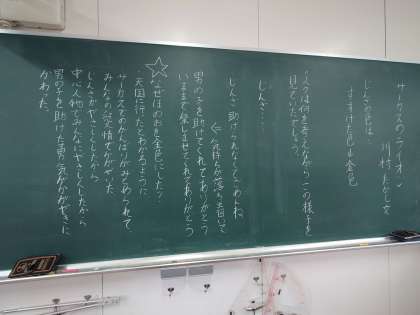 サーカスのライオン
川村たかし 文
じんざの色は…
すすけた色→金色
人々は何を考えながらこの様子を
見ていたでしょう。
じんざ…。
じんざ 助けられなくてごめんね。
気持ちが落ち着いて
男の子を助けてくれてありがとう
いままで楽しませてくれてありがとう
☆なぜほのおを金色にした?
・天国に行ったとわかるように
サーカスでのがんばりがみとめられて、
みんなの愛情でかがやいた
じんざがやさしくしたから
中心人物でみんなにやさしくしたから
男の子を助けた勇気がかがやきに
かわった。